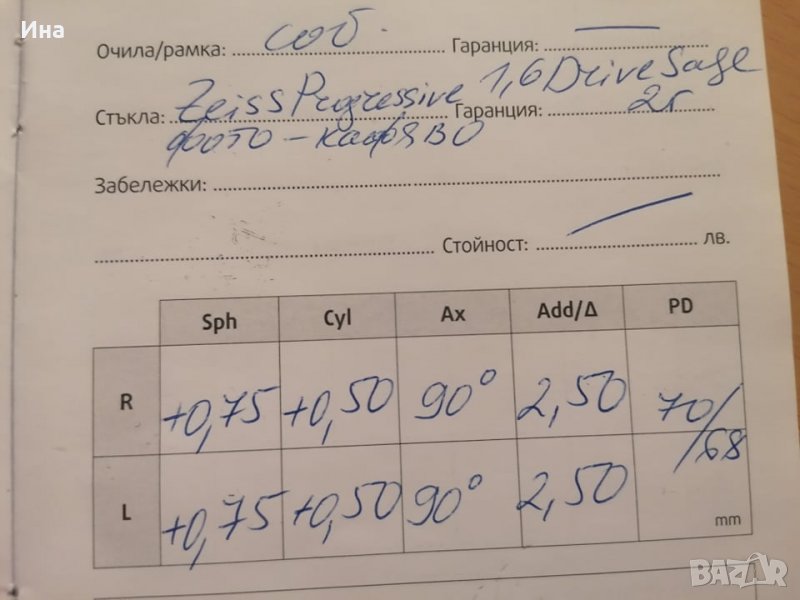 Ина
Очила/рамка: соб. Гаранция: —
Стъкла: Zeiss Progressive 1,6 DriveSafe Гаранция: 2г
фото – кафяво
Забележки:
Стойност: — лв.
Sph Cyl Ax Add/Δ PD
R +0,75 +0,50 90° 2,50 70/68
L +0,75 +0,50 90° 2,50
mm
BAZAR